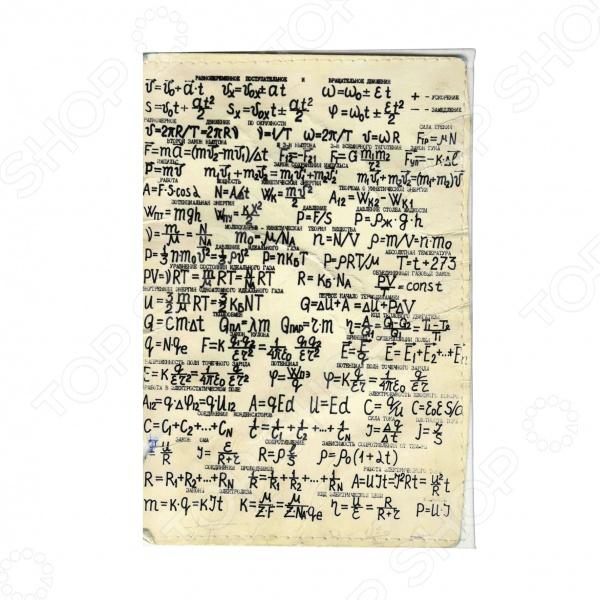 РАВНОПЕРЕМЕННОЕ ПОСТУПАТЕЛЬНОЕ И ВРАЩАТЕЛЬНОЕ ДВИЖЕНИЯ
v=v₀+a·t vₓ=v₀ₓ±at ω=ω₀±εt + - УСКОРЕНИЕ
S=v₀t+at²/2 Sₓ=v₀ₓt±at²/2 φ=ω₀t±εt²/2 - - ЗАМЕДЛЕНИЕ
РАВНОМЕРНОЕ ДВИЖЕНИЕ ПО ОКРУЖНОСТИ
v=2πR/T=2πRν ν=1/T ω=2π/T v=ωR
СИЛА ТРЕНИЯ
Fтр=μN
ВТОРОЙ ЗАКОН НЬЮТОНА ЗАКОН ГУКА
F=ma=(mv₂-mv₁)/Δt F₁₂=-F₂₁ F=G m₁m₂/r² Fуп=-k·Δl
ИМПУЛЬС ЗАКОН СОХРАНЕНИЯ ИМПУЛЬСА
P=mv m₁v₁+m₂v₂=m₁v₁+m₂v₂ m₁v₁+m₂v₂=(m₁+m₂)v
РАБОТА МОЩНОСТЬ ТЕОРЕМА О КИНЕТИЧЕСКОЙ ЭНЕРГИИ
A=F·S·cosα N=A/Δt Wк=mv²/2 A₁₂=Wк₂-Wк₁
ПОТЕНЦИАЛЬНАЯ ЭНЕРГИЯ ДАВЛЕНИЕ ДАВЛЕНИЕ СТОЛБА ЖИДКОСТИ
Wпт=mgh Wпу=kx²/2 P=F/S P=ρж·g·h
МОЛЕКУЛЯРНО - КИНЕТИЧЕСКАЯ ТЕОРИЯ ВЕЩЕСТВА
ν=m/μ=N/Nᴀ m₀=μ/Nᴀ n=N/V ρ=m/V=n·m₀
ДАВЛЕНИЕ ИДЕАЛЬНОГО ГАЗА АБСОЛЮТНАЯ ТЕМПЕРАТУРА
P=1/3 nm₀v²=1/3 ρv² P=nKБT P=ρRT/μ T=t+273
УРАВНЕНИЕ СОСТОЯНИЯ ИДЕАЛЬНОГО ГАЗА ОБЪЕДИНЕННЫЙ ГАЗОВЫЙ ЗАКОН
PV=νRT=m/μ RT=N/Nᴀ RT R=KБ·Nᴀ PV/T=const
ВНУТРЕННЯЯ ЭНЕРГИЯ ОДНОАТОМНОГО ИДЕАЛЬНОГО ГАЗА ПЕРВОЕ НАЧАЛО ТЕРМОДИНАМИКИ
U=3/2 m/μ RT=3/2 KБNT Q=ΔU+A=ΔU+PΔV
Q=cmΔt Qпл=λm Qпар=r·m η=A/Q₁=(Q₁-Q₂)/Q₁=(T₁-T₂)/T₁
ЗАКОН КУЛОНА ПРИНЦИП СУПЕРПОЗИЦИИ ПОЛЕЙ
q=Nqe F=k q₁q₂/εr²=1/4πε₀ q₁q₂/εr² E=F/q E=E₁+E₂+...+Eₙ
НАПРЯЖЕННОСТЬ ПОЛЯ ТОЧЕЧНОГО ЗАРЯДА ПОТЕНЦИАЛ ПОТЕНЦИАЛ ПОЛЯ ТОЧЕЧНОГО ЗАРЯДА
E=k q/εr²=1/4πε₀ q/εr² φ=Wпэ/q φ=k q/εr=1/4πε₀ q/εr
РАБОТА В ЭЛЕКТРОСТАТИЧЕСКОМ ПОЛЕ
A₁₂=q·Δφ₁₂=qU₁₂ A=qEd U=Ed C=q/U C=ε₀εS/d
СОЕДИНЕНИЯ КОНДЕНСАТОРОВ СИЛА ТОКА
C=C₁+C₂+...+Cɴ 1/C=1/C₁+1/C₂+...+1/Cɴ J=Δq/Δt j=J/S
ЗАКОН ОМА СОПРОТИВЛЕНИЕ ЗАВИСИМОСТЬ СОПРОТИВЛЕНИЯ ОТ
U/R J=ε/(R+r) R=ρ l/S ρ=ρ₀(1+αt)
СОЕДИНЕНИЯ ПРОВОДНИКОВ РАБОТА ЭЛЕКТРИЧЕСКОГО
R=R₁+R₂+...+Rɴ 1/R=1/R₁+1/R₂+...+1/Rɴ A=UJt=J²Rt=U²/R t
ЗАКОНЫ ЭЛЕКТРОЛИЗА КПД ЭЛЕКТРИЧЕСКОЙ ЦЕПИ
m=k·q=kJt k=μ/ZF=μ/ZNᴀqe η=U/ε=R/(R+r) P=U·J
TOP SHOP